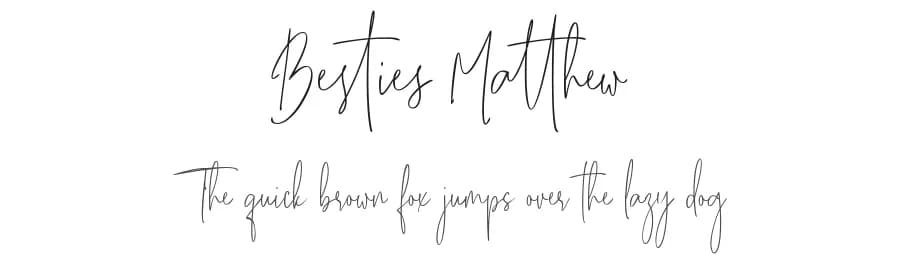 Besties Matthew
The quick brown fox jumps over the lazy dog